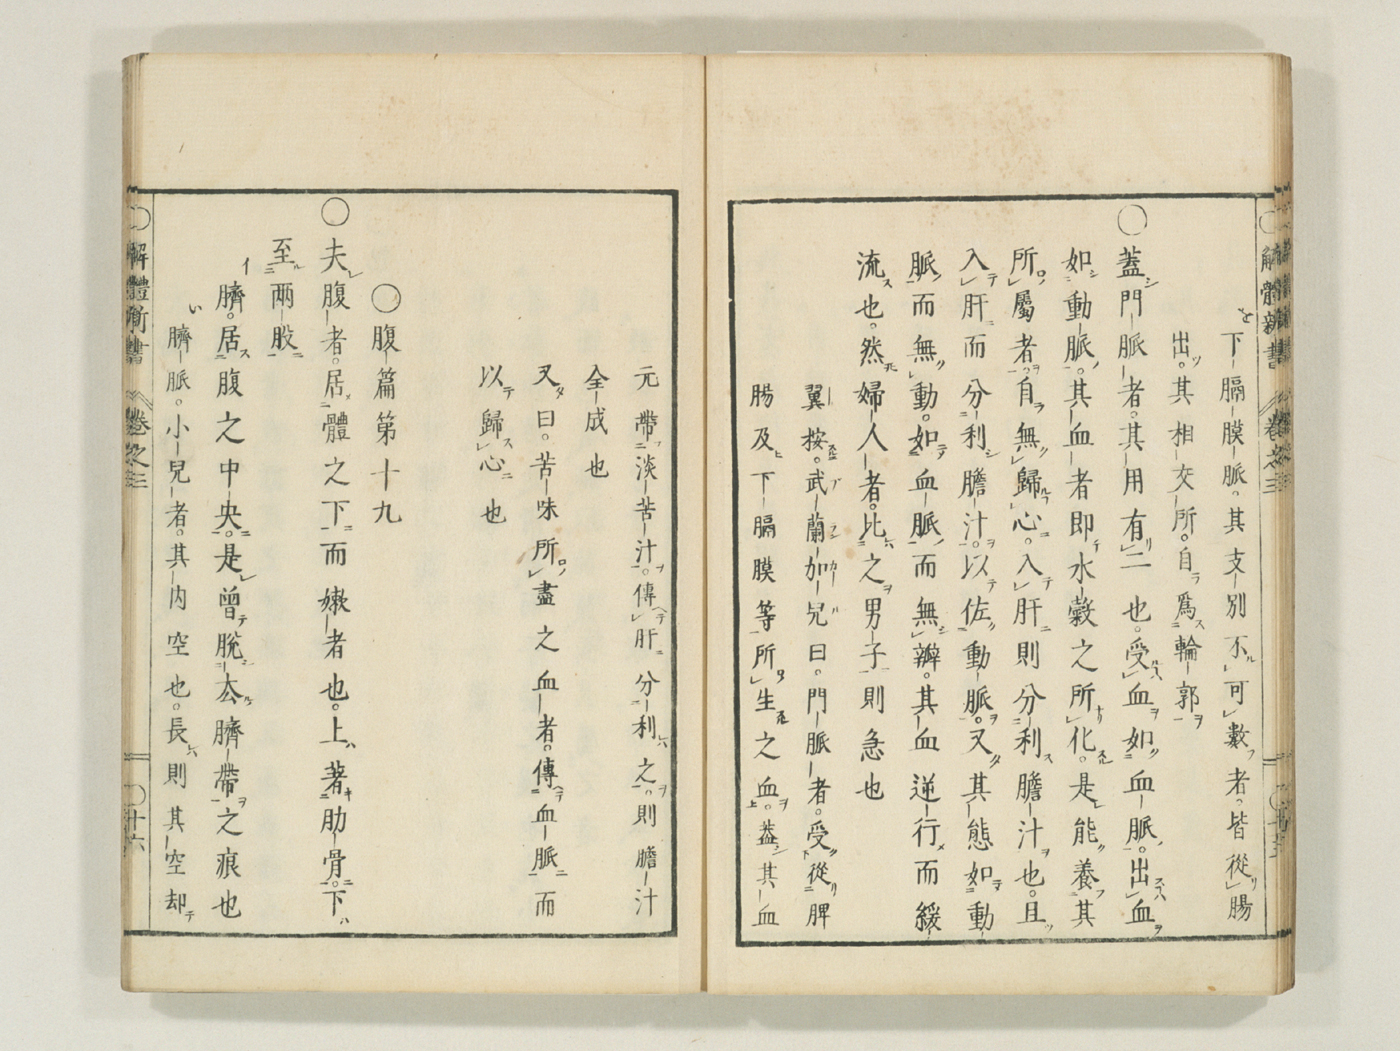 下膈膜脈。其支別不可數者。皆從腸
出。其相交所。自爲輪郭
○蓋門脈者。其用有二也。受血如血脈。出血
如動脈。其血者即水穀之所化。是能養其
所屬者。自無歸心。入肝則分利膽汁也。且
入肝而分利膽汁。以佐動脈。又其態如動
脈而無動。如血脈而無瓣。其血逆行而緩
流也。然婦人者。比之男子則急也
翼按。武蘭加兒曰。門脈者。受從脾
腸及下膈膜等所生之血。蓋其血
元帶淡苦汁。傳肝分利之。則膽汁
全成也
又曰。苦味所盡之血者。傳血脈而
以歸心也
○腹篇第十九
○夫腹者。居體之下而嫩者也。上著肋骨。下
至兩股
イ臍。居腹之中央。是曾脫去臍帶之痕也
い臍脈。小兒者。其內空也。長則其空却
解體新書 卷之三 十六